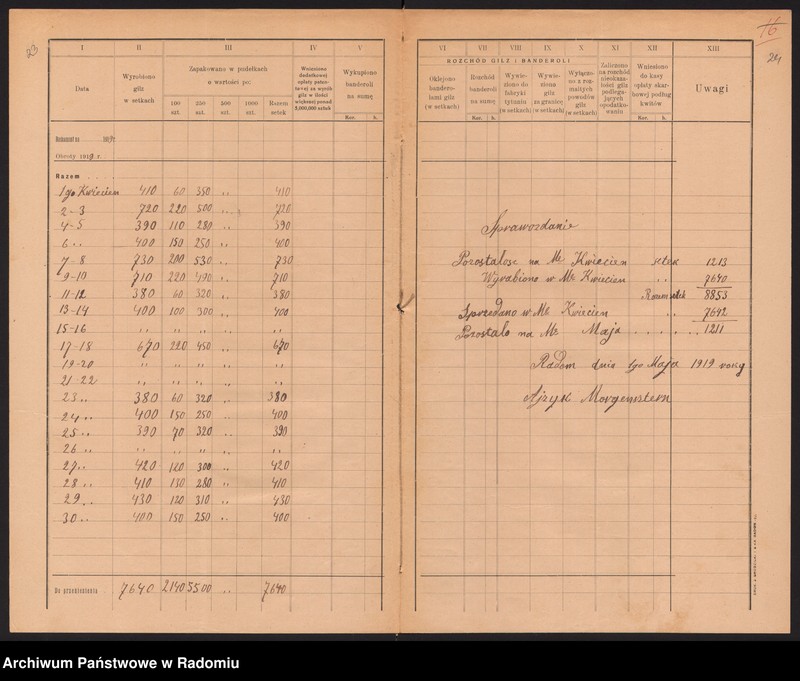 23
I II III IV V
Data
Wyrobiono gilz w setkach
Zapakowano w pudełkach o wartości po:
100 szt. 250 szt. 500 szt. 1000 szt. Razem setek
Wniesiono dodatkowej opłaty patentowej za wyrób gilz w ilości większej ponad 3,000,000 sztuk
Wykupiono banderoli na sumę
Kor. h.
Remanent na
Obroty 1919 r.
Razem . . . .
1go Kwiecien 410 60 350 ,, 410
2-3 720 220 500 ,, 720
4-5 390 110 280 ,, 390
6 ,, 400 150 250 ,, 400
7-8 730 200 530 ,, 730
9-10 710 220 490 ,, 710
11-12 380 60 320 ,, 380
13-14 400 100 300 ,, 400
15-16 ,, ,, ,, ,, ,,
17-18 670 220 450 ,, 670
19-20 ,, ,, ,, ,, ,,
21 22 ,, ,, ,, ,, ,,
23 ,, 380 60 320 ,, 380
24 ,, 400 150 250 ,, 400
25 ,, 390 70 320 ,, 390
26 ,, ,, ,, ,, ,, ,,
27 ,, 420 120 300 ,, 420
28 ,, 410 130 280 ,, 410
29 ,, 430 120 310 ,, 430
30 ,, 400 150 250 ,, 400
Do przeniesienia 7640 2140 5500 ,, 7640
16
24
VI VII VIII IX X XI XII XIII
ROZCHÓD GILZ I BANDEROLI
Oklejono banderolami gilz (w setkach)
Rozchód banderoli na sumę
Kor. h.
Wywieziono do fabryki tytuniu (w setkach)
Wywieziono gilz za granicę (w setkach)
Wyłączono z rozmaitych powodów gilz (w setkach)
Zaliczono na rozchód nieokazałości gilz podlegających opodatkowaniu
Wniesiono do kasy opłaty skarbowej podług kwitów
Kor. h.
Uwagi
Sprawozdanie
Pozostalosc na Mc Kwiecien setek 1213
Wyrabiono w Mc Kwiecien ,, 7640
Razem setek 8853
Sprzedano w Mc Kwiecien ,, 7642
Pozostalo na Mc Maja . . . . . 1211
Radom dnia 1go Maja 1919 roku
Ajzyk Morgensztern
Archiwum Państwowe w Radomiu